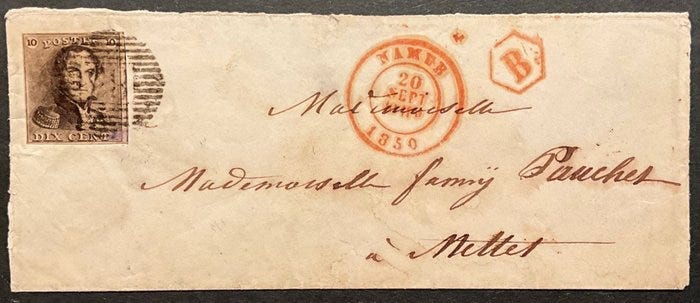 10 POSTES 10
DIX CENT
NAMUR
20
SEPT
1850
B
Mademoiselle
Mademoiselle fanny Pauchet
à Mettet